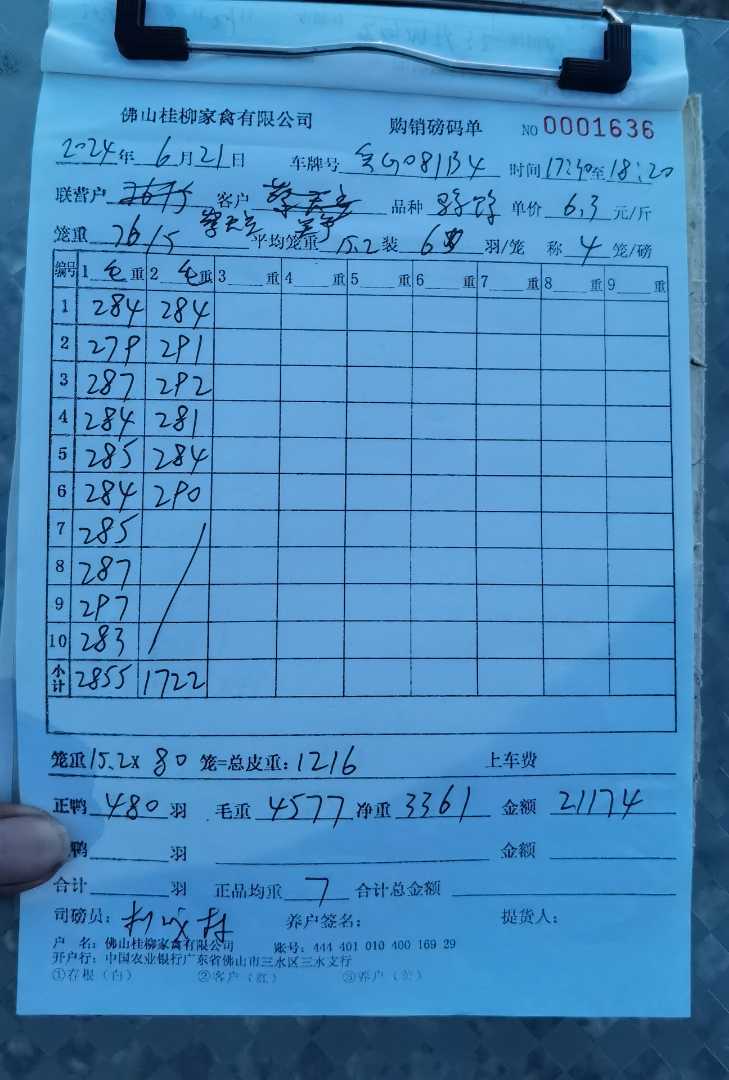 佛山桂柳家禽有限公司 购销磅码单 NO 0001636
2024年 6月21日 车牌号 G081B4 时间17:30至18:20
联营户 客户 品种 单价 6.3 元/斤
笼重 76/5 平均笼重 15.2 装 6 羽/笼 称 4 笼/磅
编号 1 毛重 2 毛重 3 重 4 重 5 重 6 重 7 重 8 重 9 重
1 284 284
2 279 291
3 287 292
4 284 281
5 285 284
6 284 290
7 285
8 287
9 297
10 283
小计 2855 1722
笼重15.2x 80 笼=总皮重:1216 上车费
正鸭 480 羽 毛重 4577 净重 3361 金额 21174
鸭 羽 金额
合计 羽 正品均重 7 合计总金额
司磅员: 养户签名: 提货人:
户 名: 佛山桂柳家禽有限公司 账号: 444 401 010 400 169 29
开户行: 中国农业银行广东省佛山市三水区三水支行
①存根(白) ②客户(红) ③养户